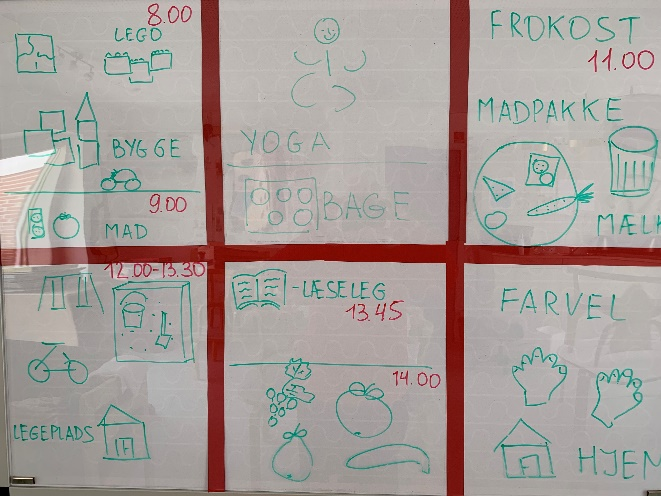 8.00
LEGO
BYGGE
9.00
MAD
YOGA
BAGE
FROKOST
11.00
MADPAKKE
MÆLK
12.00-13.30
LEGEPLADS
-LÆSELEG
13.45
14.00
FARVEL
HJEM